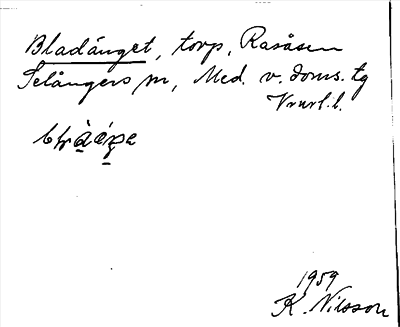 Bladänget, torp, Rasåsen
Selångers sn, Med. v. doms. tg
1959
K. Nilsson